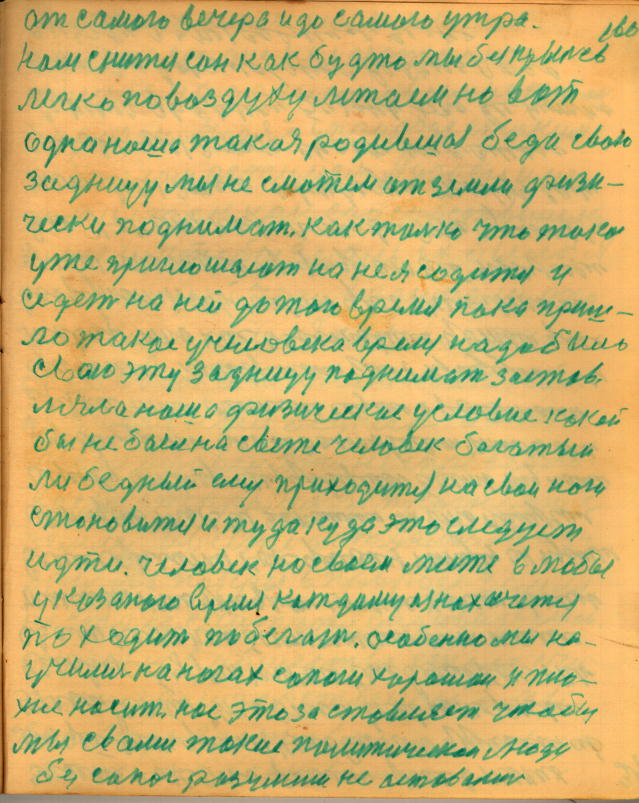 от самого вечера и до самого утра.
нам снится сон как будто мы без крыльев
легко по воздуху летаем но вот
одна наша такая родившая беда свою
задницу мы не смотем от земли физи-
чески поднимат, как только что тако
уже приглошают на нея садится и
седет на ней до того время пока приш-
ло такое у человека время надо было
свою эту задницу поднимат застов.
ляла наша физическое условие какой
бы не был на свете человек богатый
ли бедный ему приходится на свои ноги
становится и туда куда это следует
идти. человек на своем месте в любы
указаного время каждому хочется
походит побегат. особенно мы на-
училися на ногах сапоги хорошаи и пло-
хие носит. нас это застовляет чтобы
мы с вами такие политическаи люди
без сапог разумши не оставалис